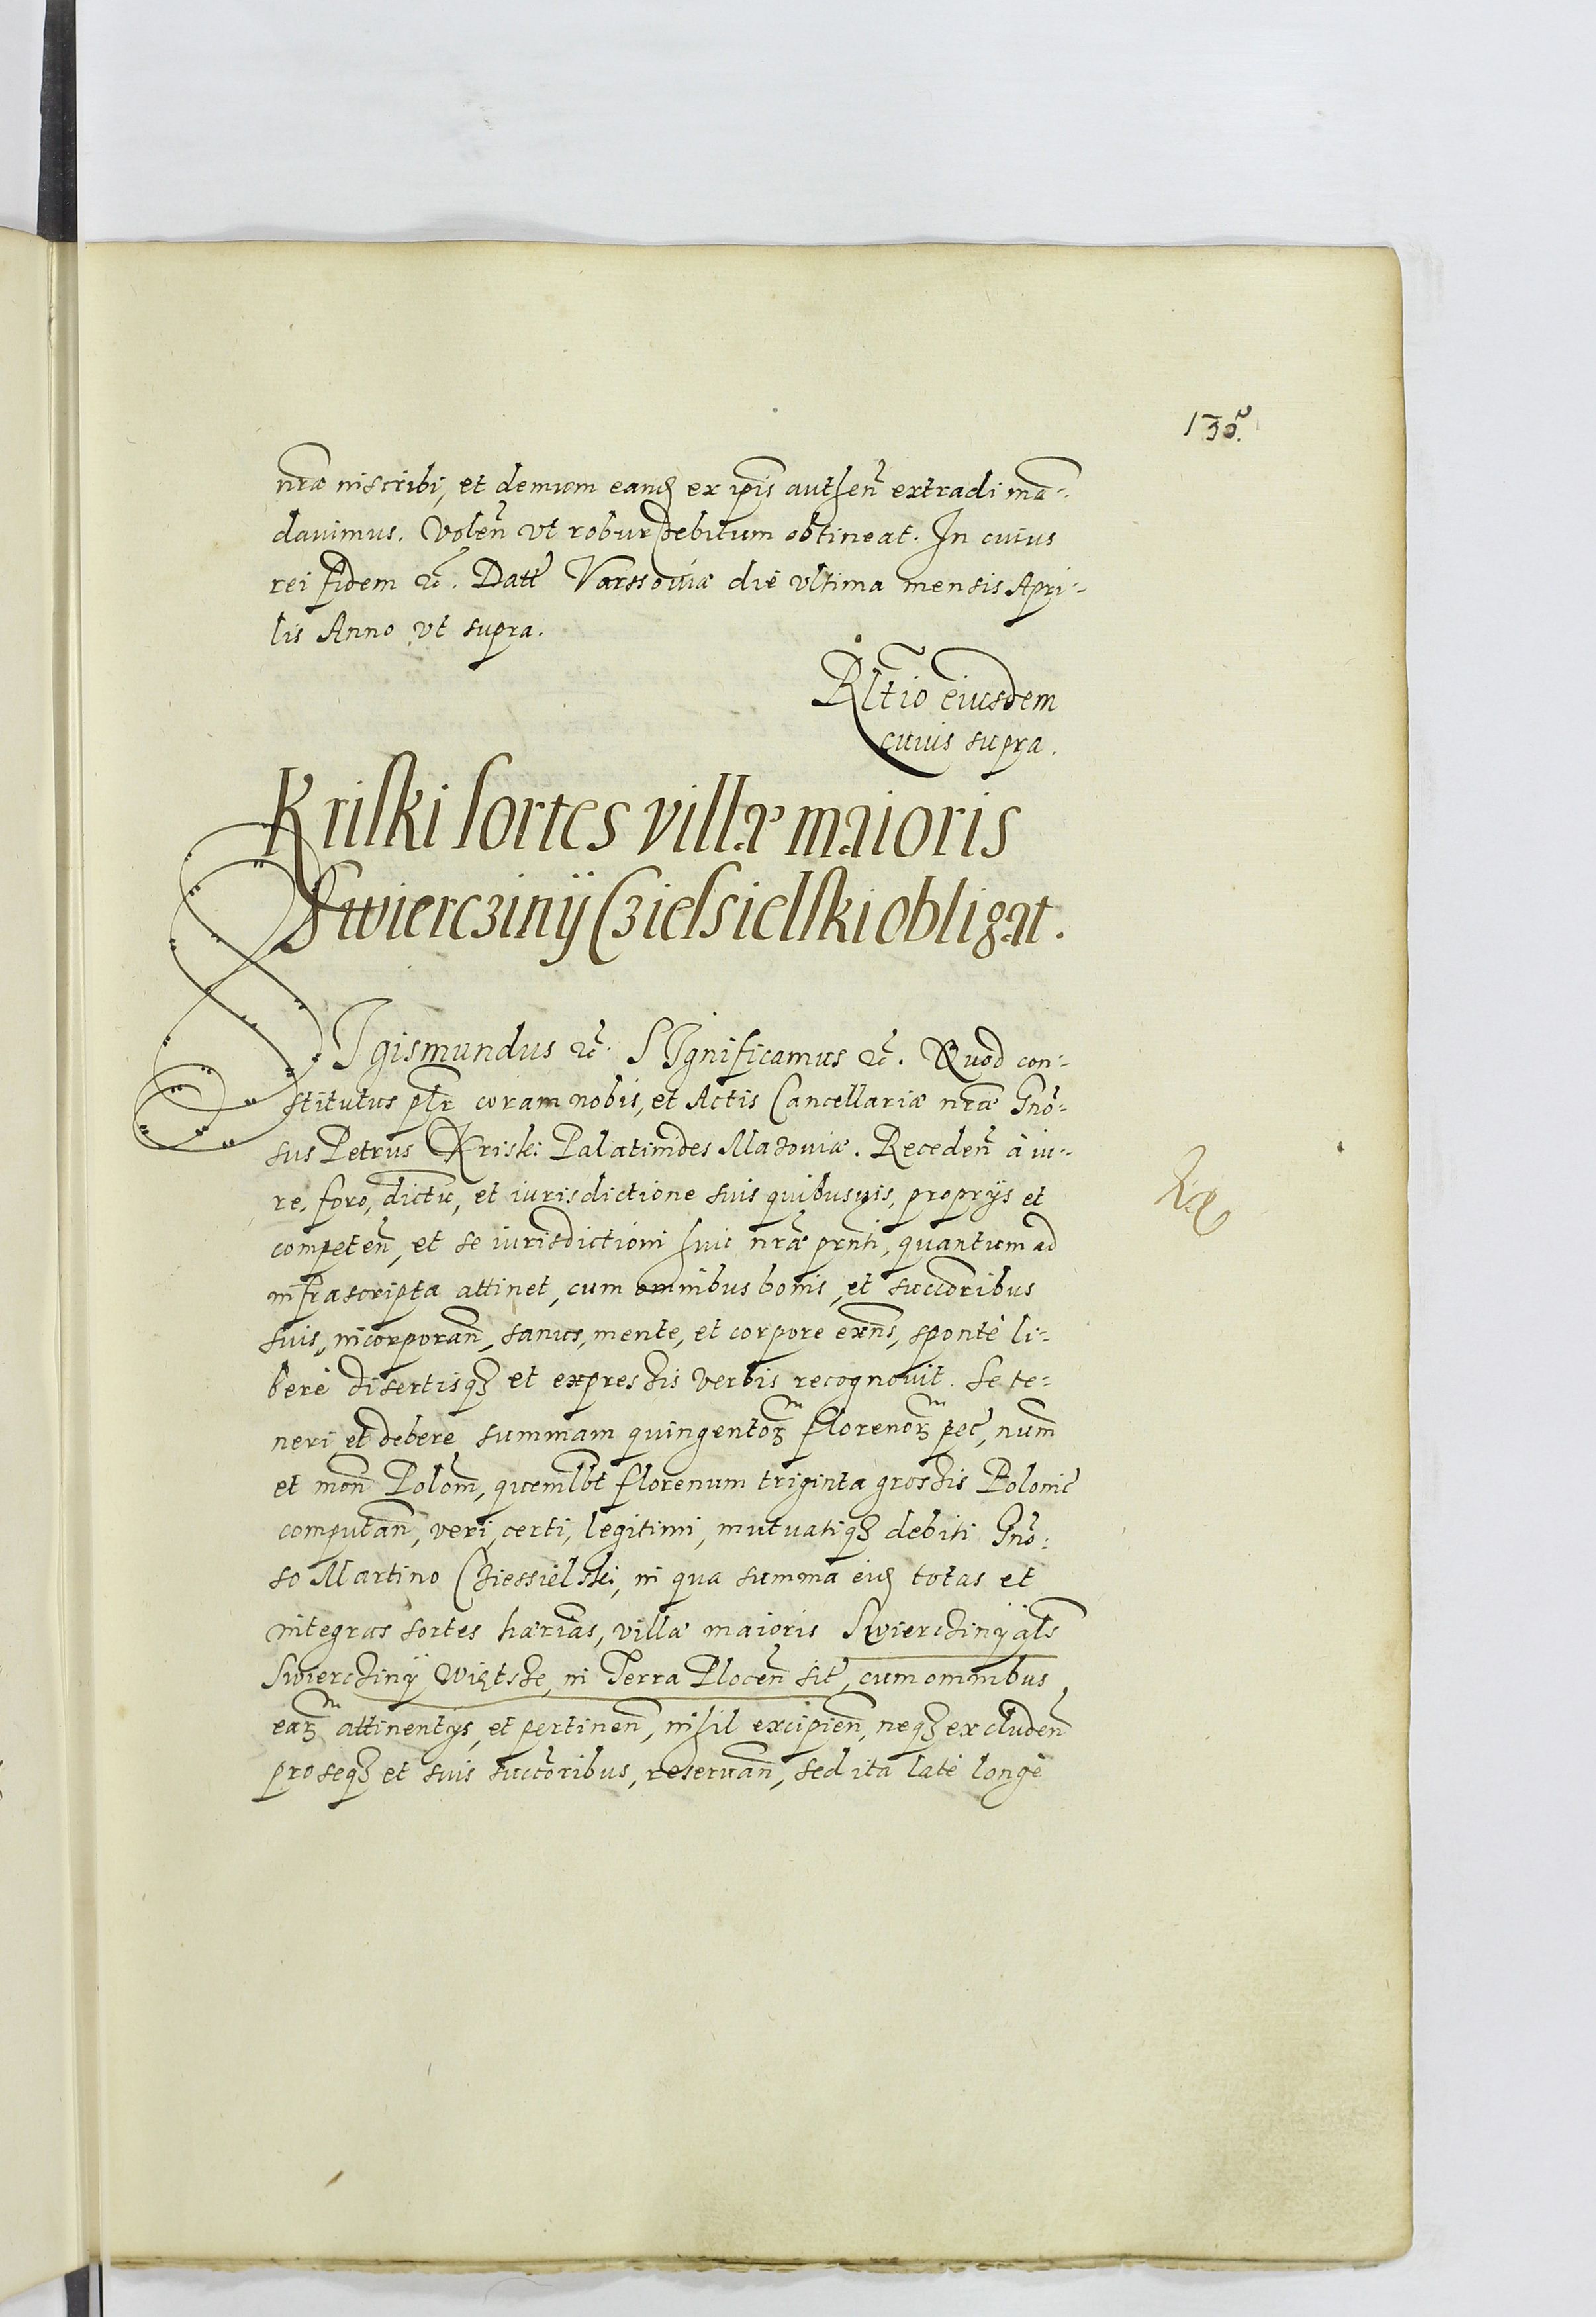 130.
nr̃æ inscribi, et demum eand ex ip̃is authen̄ extradi mā-
davimus. Volen̄ vt robur debitum obtineat. In cuius
rei fidem &c̃. Datt Varssoviæ die vltima mensis Apri-
lis Anno vt supra.
Rl̃tio eiusdem
cuius supra.
Kriski sortes villæ maioris
Swiercziny Czielsielski obligat.
SIgismundus &c̃. SIgnificamus &c̃. Quod con-
stitutus pl̃tr coram nobis, et Actis Cancellariæ nr̃æ Gño-
sus Petrus Kriski Palatinides Mazoviæ. Receden̄ à iu-
re, foro, dictũ, et iurisdictione suis quibusvis, proprijs et
competen̄, et se iurisdictioni huic nr̃æ pr̃nti, quantum ad
infrascripta attinet, cum omnibus bonis, et succ̃oribus
suis, incorporan̄, sanus, mente, et corpore exñs, sponte li-
berè disertisq3 et expressis verbis recognovit. Se te-
neri et debere summam quingentor3 florenor3 pec̃, num̃
et mon̄ Polon̄, quemlbt florenum triginta grossis Polonic̃
computan̄, veri, certi, legitimi, mutuatiq3 debiti Gño-
so Martino Cziessielski, in qua summa eid totas et
integras sortes hær̃ias, villæ maioris Swiercziny al̃s
Swierczinÿ Więtsze, in Terra Plocen̄ sit̃, cum omnibus
ear3 attinentijs, et pertinen̄, nihil excipien̄, neq3 excluden̄
pro seq3 et suis succ̃oribus, reservan̄, sed ita latè longè